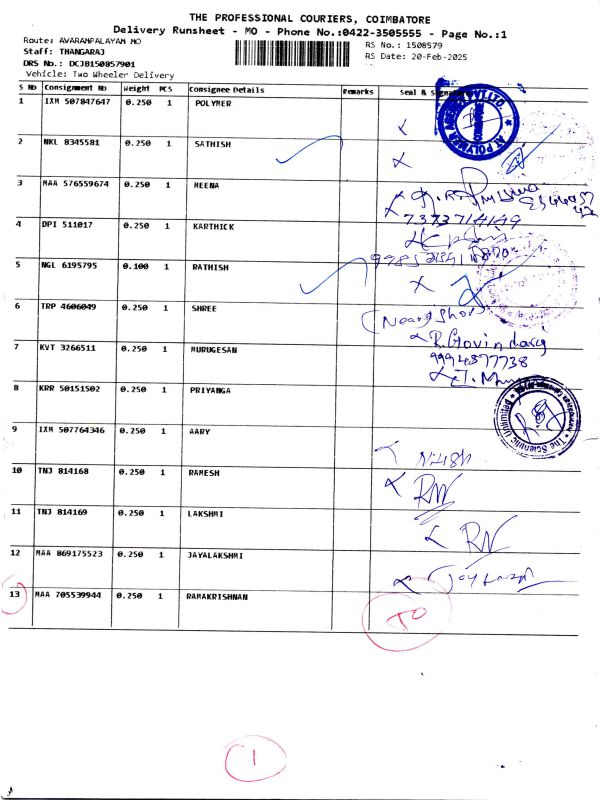 THE PROFESSIONAL COURIERS, COIMBATORE
Delivery Runsheet - MO - Phone No.:0422-3505555 - Page No.:1
Route: AVARAMPALAYAM MO
RS No.: 1508579
Staff: THANGARAJ
RS Date: 20-Feb-2025
DRS No.: DCJB150857901
Vehicle: Two Wheeler Delivery
S No Consignment No Weight PCS Consignee Details Remarks Seal &
1 IXM 507847647 0.250 1 POLYMER
2 NKL 8345581 0.250 1 SATHISH
3 MAA 576559674 0.250 1 MEENA
7373714149
4 DPI 511017 0.250 1 KARTHICK
5 NGL 6195795 0.100 1 RATHISH
6 TRP 4606049 0.250 1 SHREE
(Near Shop)
R. Govindaraj
7 KVT 3266511 0.250 1 MURUGESAN
9994877738
8 KRR 50151502 0.250 1 PRIYANGA
The Scientific Unlimited
9 IXM 507764346 0.250 1 AARY
10 TNJ 814168 0.250 1 RAMESH
RN
11 TNJ 814169 0.250 1 LAKSHMI
RN
12 MAA 869175523 0.250 1 JAYALAKSHMI
13 MAA 705539944 0.250 1 RAMAKRISHNAN
TO
1